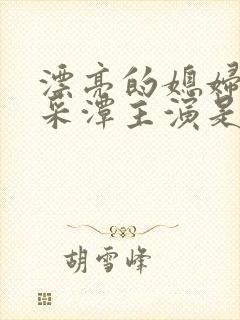 漂亮的媳妇
采潭主演是
胡雪峰